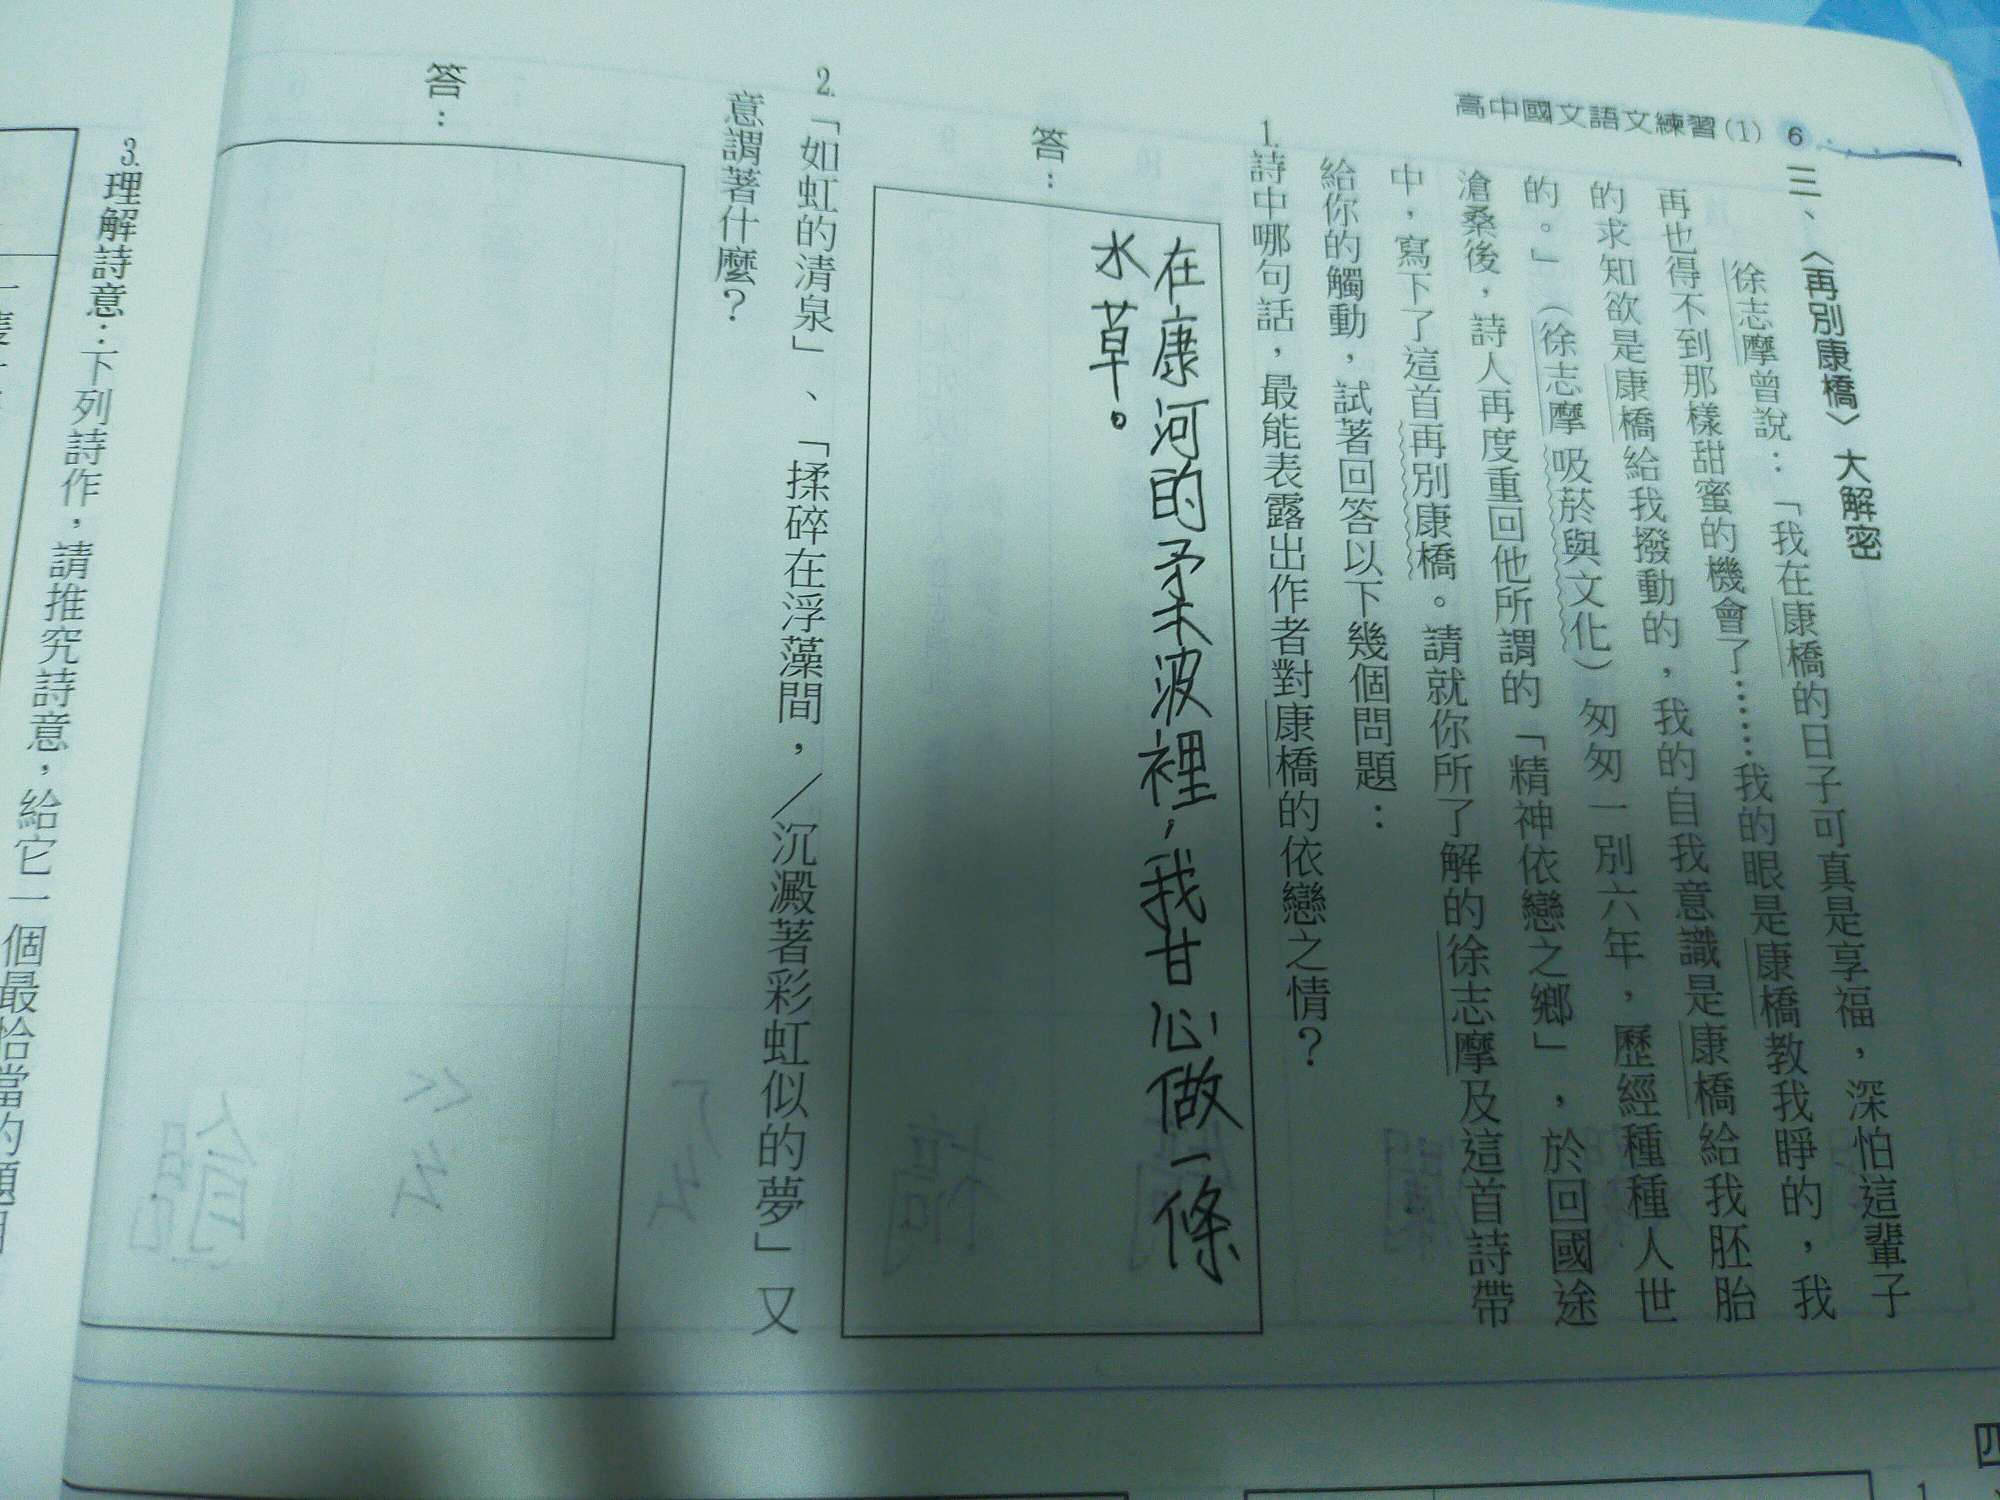 高中國文語文練習(1) 6
三、〈再別康橋〉大解密
徐志摩曾說：「我在康橋的日子可真是享福，深怕這輩子
再也得不到那樣甜蜜的機會了……我的眼是康橋教我睜的，我
的求知欲是康橋給我撥動的，我的自我意識是康橋給我胚胎
的。」（徐志摩 吸菸與文化）匆匆一別六年，歷經種種人世
滄桑後，詩人再度重回他所謂的「精神依戀之鄉」，於回國途
中，寫下了這首再別康橋。請就你所了解的徐志摩及這首詩帶
給你的觸動，試著回答以下幾個問題：
1.詩中哪句話，最能表露出作者對康橋的依戀之情？
答：
在康河的柔波裡，我甘心做一條
水草。
2.「如虹的清泉」、「揉碎在浮藻間，／沉澱著彩虹似的夢」又
意謂著什麼？
答：
3.理解詩意：下列詩作，請推究詩意，給它一個最恰當的題目
四
1